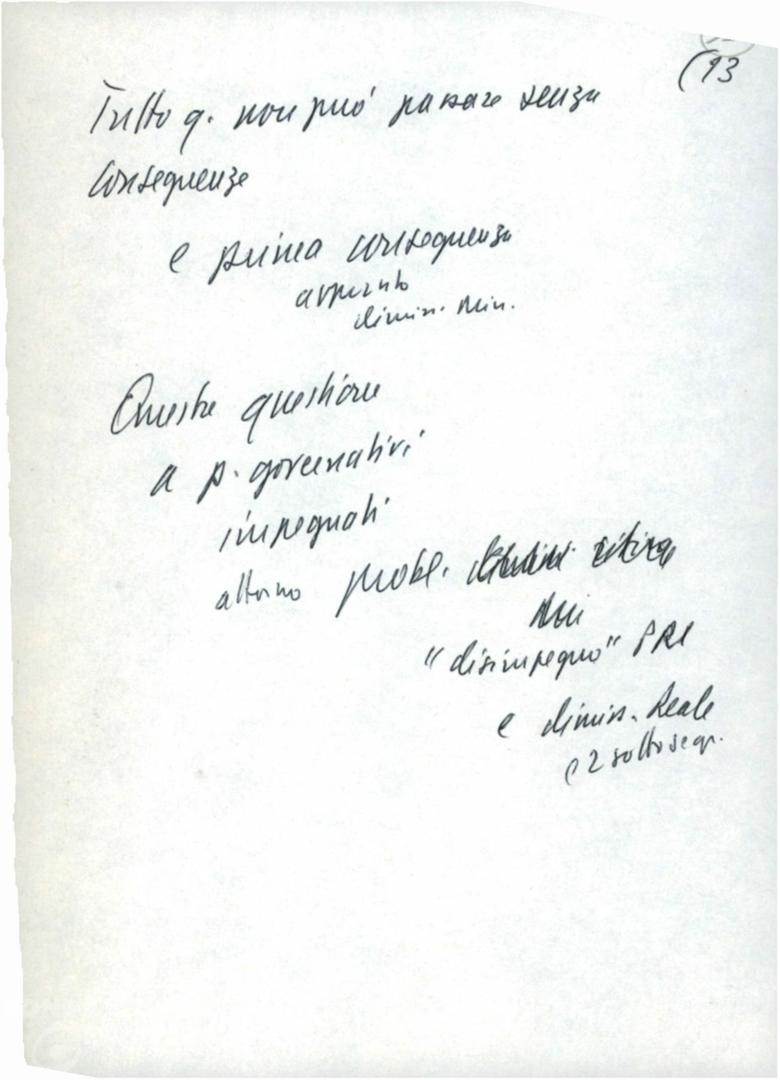 (13
Tutto q. non può passare senza
conseguenze
e prima conseguenza
appunto
dimiss. Min.
Queste questione
a p. governativi
impegnati
attorno probl.
"disimpegno" PRI
e dimiss. Reale
e 2 sottosegr.